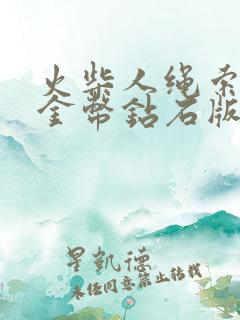 火柴人绳索
金币钻石版
星凯德
未经同意禁止转载